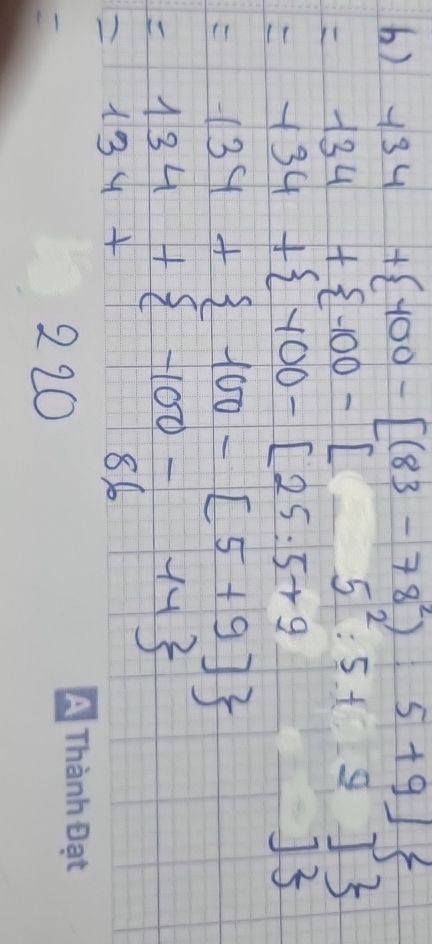 h) 134 + { 100 - [(83 - 78²) : 5 + 9] }
= 134 + { 100 - [ 5² : 5 + 9 ] }
= 134 + { 100 - [ 25 : 5 + 9 ] }
= 134 + { 100 - [ 5 + 9 ] }
= 134 + { 100 - 14 }
= 134 + 86
= 220
A Thành Đạt